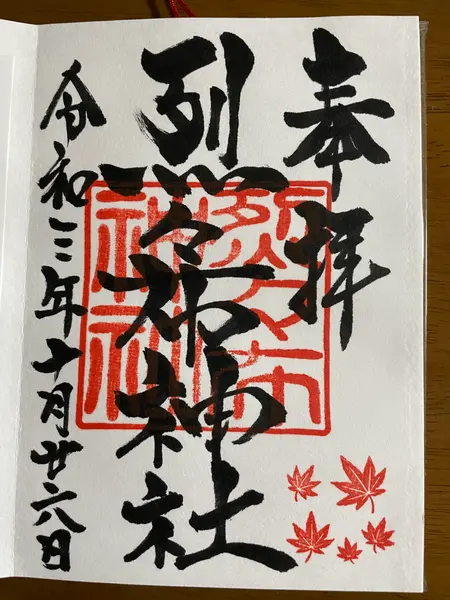 奉拝
烈々布神社
令和三年十月廿六日
烈々布
神社